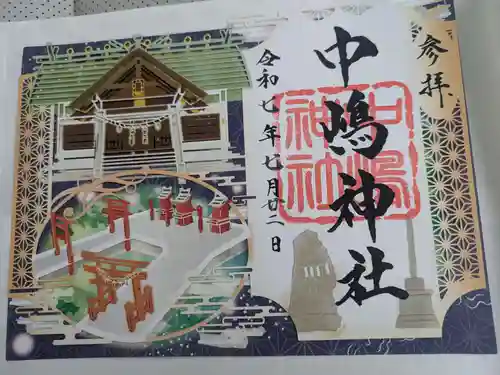 参拝
中嶋神社
中嶋
神社
令和七年七月廿二日